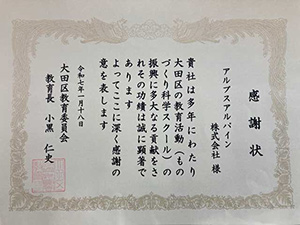 感謝状
アルプスアルパイン
株式会社 様
貴社は多年にわたり
大田区の教育活動(もの
づくり科学スクール)の
振興に多大なる貢献をさ
れその功績は誠に顕著で
あります
よってここに深く感謝の
意を表します
令和七年一月十八日
大田区教育委員会
教育長 小黒 仁史